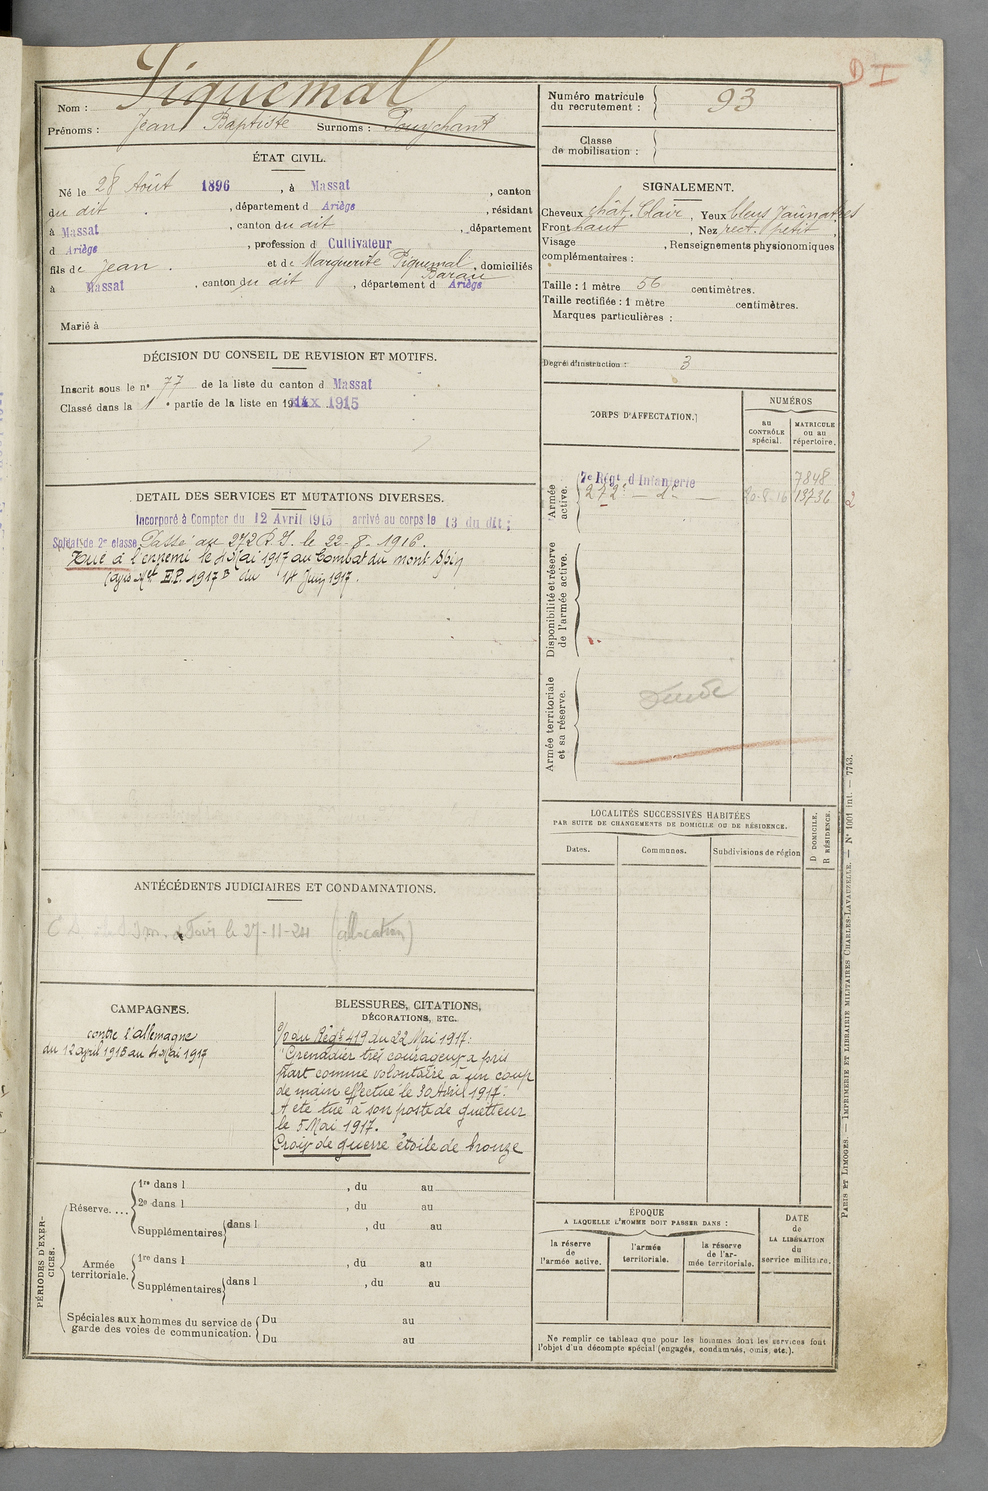 D I
Nom : Piquemal
Prénoms : Jean Baptiste Surnoms : Pouychant
ÉTAT CIVIL.
Né le 28 Août 1896, à Massat, canton
du dit, département d Ariège, résidant
à Massat, canton du dit, département
d Ariège, profession d Cultivateur
fils de Jean. et de Marguerite Piquemal, domiciliés
Barau
à Massat, canton du dit, département d Ariège
Marié à
DÉCISION DU CONSEIL DE REVISION ET MOTIFS.
Inscrit sous le n° 77 de la liste du canton d Massat
Classé dans la 1e partie de la liste en 1915
DÉTAIL DES SERVICES ET MUTATIONS DIVERSES.
Incorporé à Compter du 12 Avril 1915 arrivé au corps le 13 du dit ;
Soldat de 2e classe Passé au 272 R.I. le 22-8-1916.
Tué à l'ennemi le 4 Mai 1917 au Combat du mont Spin
E.P. 1917 B du 14 Juin 1917.
ANTÉCÉDENTS JUDICIAIRES ET CONDAMNATIONS.
le 27-11-24 (allocation)
CAMPAGNES.
contre l'allemagne
du 12 april 1915 au 4 Mai 1917
BLESSURES, CITATIONS,
DÉCORATIONS, ETC.
O/ du Régt 419 du 22 Mai 1917 :
"Grenadier très courageux a pris
part comme volontaire à un coup
de main effectué le 30 Avril 1917 :
A été tué à son poste de guetteur
le 5 Mai 1917.
Croix de guerre étoile de bronze
PÉRIODES D'EXERCICES.
Réserve. ...
1re dans l , du au
2e dans l , du au
Supplémentaires dans l , du au
Armée territoriale.
1re dans l , du au
Supplémentaires dans l , du au
Spéciales aux hommes du service de garde des voies de communication.
Du au
Du au
Numéro matricule
du recrutement : 93
Classe
de mobilisation :
SIGNALEMENT.
Cheveux chât. Clair, Yeux bleus Jaunâtres
Front haut, Nez rect. petit,
Visage , Renseignements physionomiques
complémentaires :
Taille : 1 mètre 56 centimètres.
Taille rectifiée : 1 mètre centimètres.
Marques particulières :
Degré d'instruction : 3
CORPS D'AFFECTATION.
NUMÉROS
au
CONTRÔLE
spécial.
MATRICULE
ou au
répertoire.
Armée
active.
7e Régt d'Infanterie 7848
272e — d° — 20-8-16 13736
2
Disponibilité et réserve
de l'armée active.
Armée territoriale
et sa réserve.
LOCALITÉS SUCCESSIVES HABITÉES
PAR SUITE DE CHANGEMENTS DE DOMICILE OU DE RÉSIDENCE.
Dates.
Communes.
Subdivisions de région
D DOMICILE.
R RÉSIDENCE.
ÉPOQUE
A LAQUELLE L'HOMME DOIT PASSER DANS :
la réserve
de
l'armée active.
l'armée
territoriale.
la réserve
de l'ar-
mée territoriale.
DATE
de
LA LIBÉRATION
du
service militaire.
Ne remplir ce tableau que pour les hommes dont les services font
l'objet d'un décompte spécial (engagés, condamnés, omis, etc.).
PARIS ET LIMOGES. — IMPRIMERIE ET LIBRAIRIE MILITAIRES CHARLES-LAVAUZELLE. — N° 1001 int. — 7743.